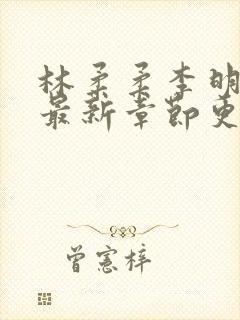 林柔柔李明
最新章节更
曾憲梓